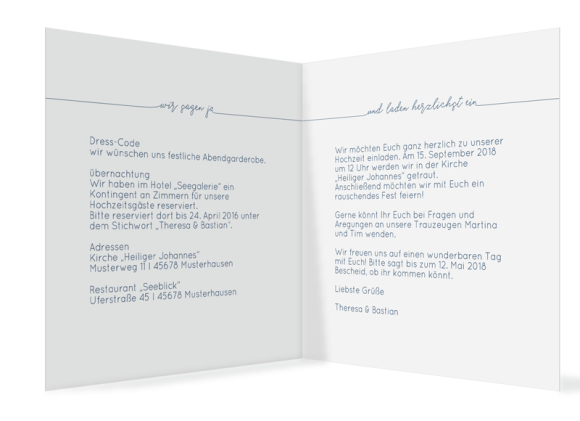 wir sagen ja
Dress-Code
wir wünschen uns festliche Abendgarderobe.
übernachtung
Wir haben im Hotel „Seegalerie" ein
Kontingent an Zimmern für unsere
Hochzeitsgäste reserviert.
Bitte reserviert dort bis 24. April 2016 unter
dem Stichwort „Theresa & Bastian".
Adressen
Kirche „Heiliger Johannes"
Musterweg 11 | 45678 Musterhausen
Restaurant „Seeblick"
Uferstraße 45 | 45678 Musterhausen
und laden herzlichst ein
Wir möchten Euch ganz herzlich zu unserer
Hochzeit einladen. Am 15. September 2018
um 12 Uhr werden wir in der Kirche
„Heiliger Johannes" getraut.
Anschließend möchten wir mit Euch ein
rauschendes Fest feiern!
Gerne könnt Ihr Euch bei Fragen und
Aregungen an unsere Trauzeugen Martina
und Tim wenden.
Wir freuen uns auf einen wunderbaren Tag
mit Euch! Bitte sagt bis zum 12. Mai 2018
Bescheid, ob ihr kommen könnt.
Liebste Grüße
Theresa & Bastian